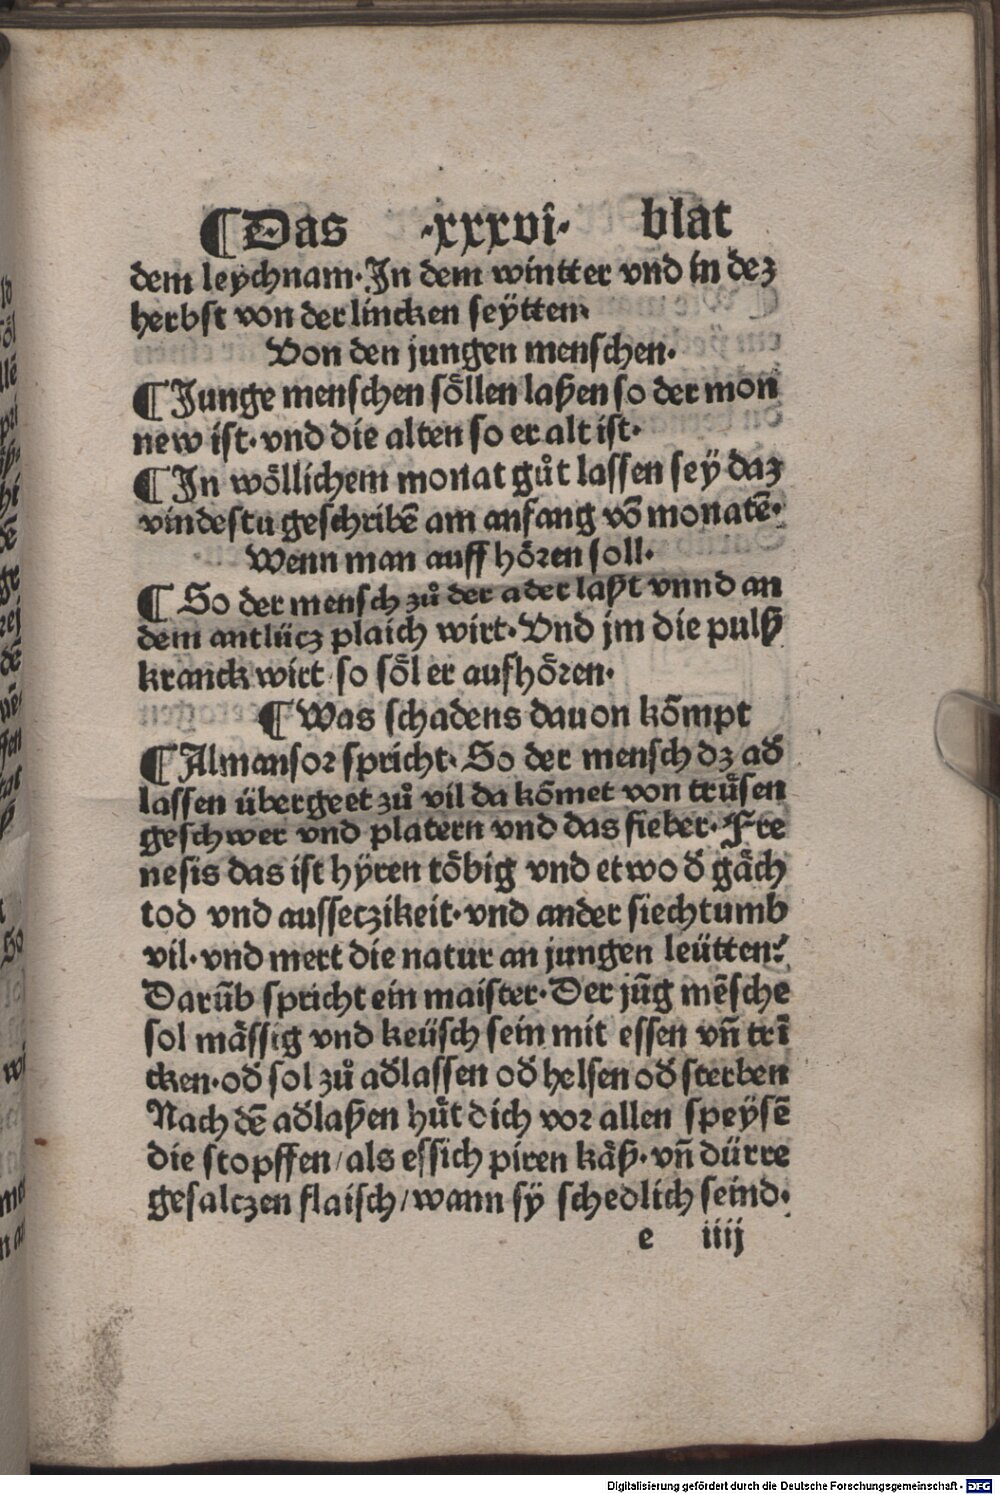 ¶Das ·xxxvi· blat
dem leychnam·In dem wintter vnd in dez
herbst von der lincken seÿtten·
Von den jungen menschen·
¶Junge menschen soͤllen laßen so der mon
new ist·vnd die alten so er alt ist·
¶In woͤllichem monat guͦt lassen seÿ daz
vindestu geschribē am anfang võ monatē·
Wenn man auff hoͤren soll·
¶So der mensch zuͦ der ader laßt vnnd an
dem antlücz plaich wirt·Vnd jm die pulß
kranck wirt so soͤl er aufhoͤren·
¶Was schadens dauon kõmpt
¶Almansor spricht·So der mensch dz ad̕
lassen übergeet zuͦ vil da kõmet von truͤsen
geschwer vnd platern vnd das fieber·Fre
nesis das ist hÿren toͤbig vnd etwo d̕ gaͤch
tod vnd aussetzikeit·vnd ander siechtumb
vil·vnd mert die natur an jungen leütten:
Darūb spricht ein maister·Der jūg mēsche
sol maͤssig vnd keüsch sein mit essen vñ trī
cken·od̕ sol zuͦ ad̕lassen od̕ helfen od̕ sterben
Nach dē ad̕laßen huͤt dich vor allen speÿsē
die stopffen/als essich piren kaͤß·vñ dürre
gesalczen flaisch/wann sÿ schedlich seind·
e iiij
Digitalisierung gefördert durch die Deutsche Forschungsgemeinschaft - DFG